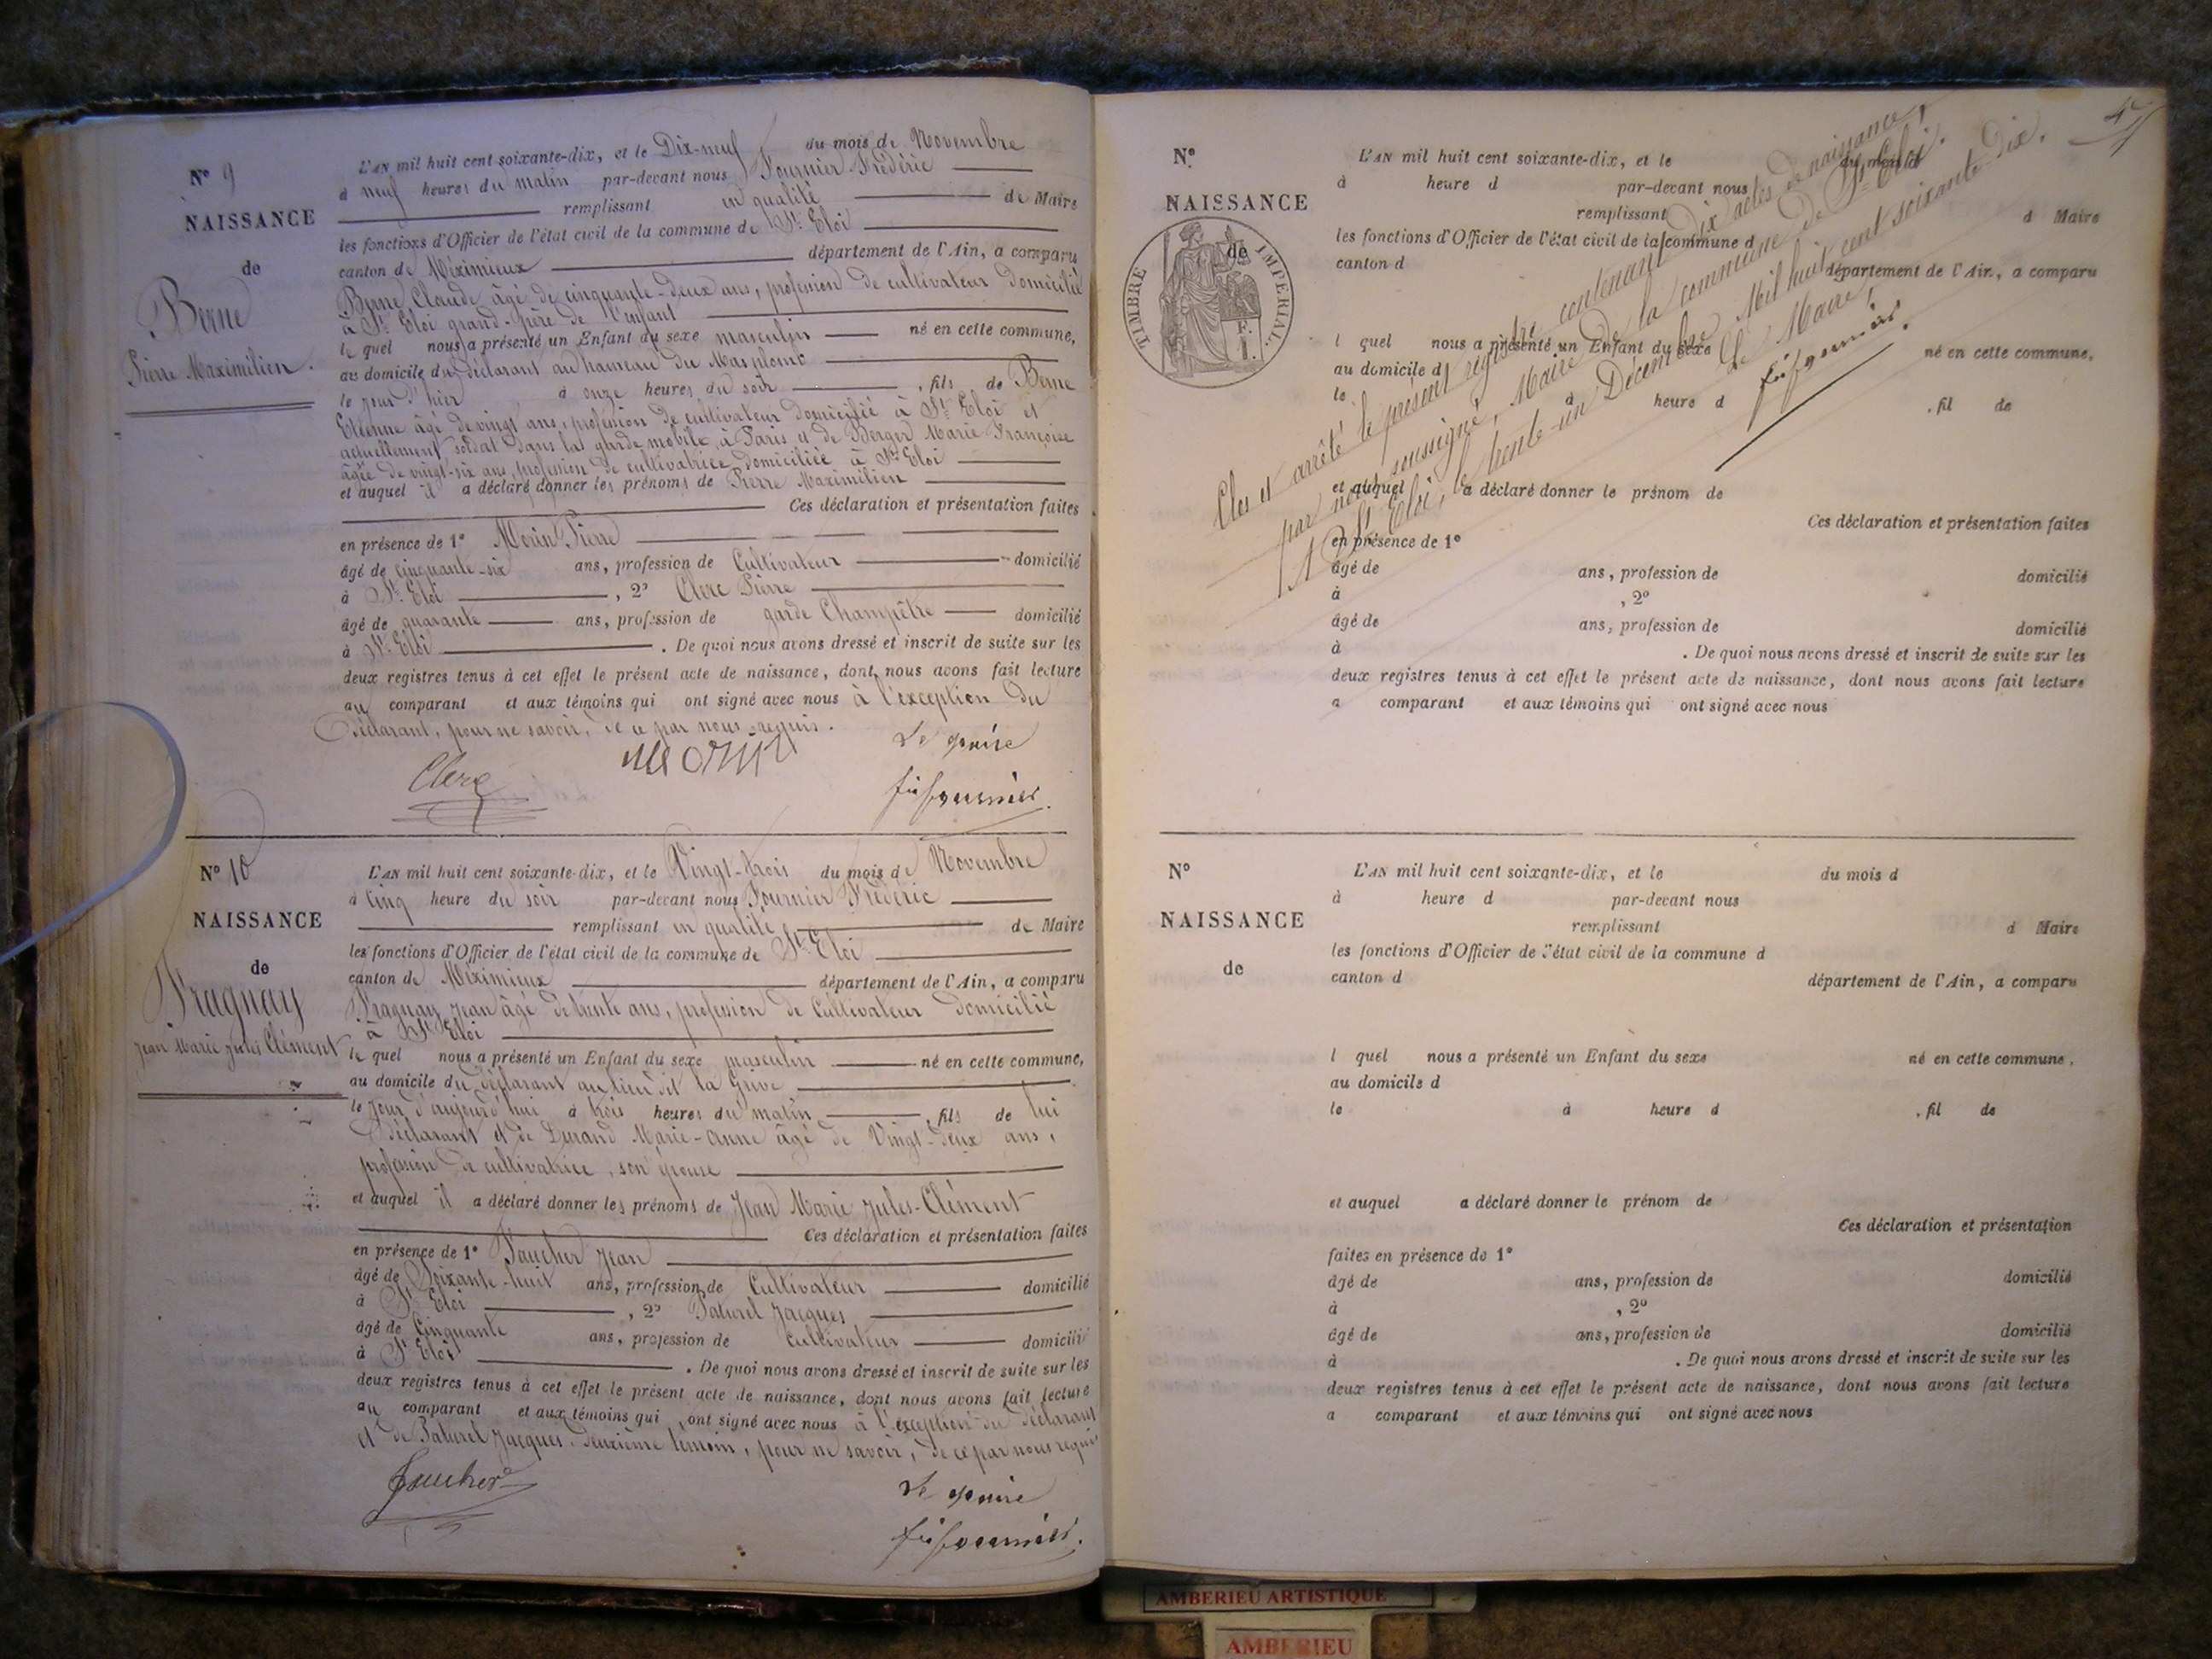 N° 9
NAISSANCE
de
Berne
Pierre Maximilien.
L'AN mil huit cent soixante-dix, et le Dix-neuf du mois de Novembre
à neuf heures du matin par-devant nous Fournier Frédéric
remplissant en qualité de Maire
les fonctions d'Officier de l'état civil de la commune de St. Eloi
canton de Méximieux département de l'Ain, a comparu
Berne Claude âgé de cinquante-deux ans, profession de cultivateur domicilié
à St. Eloi grand-père de l'enfant
le quel nous a présenté un Enfant du sexe masculin né en cette commune,
au domicile du déclarant au hameau du Mas plomb
le jour d'hier, à onze heures du soir, fils de Berne
Etienne âgé de vingt ans, profession de cultivateur domicilié à St. Eloi et
actuellement soldat dans la garde mobile à Paris et de Berger Marie Françoise
âgée de vingt-six ans, profession de cultivatrice domiciliée à St. Eloi
et auquel il a déclaré donner les prénoms de Pierre Maximilien
Ces déclaration et présentation faites
en présence de 1° Morin Pierre
âgé de cinquante-six ans, profession de Cultivateur domicilié
à St. Eloi, 2° Clerc Pierre
âgé de quarante ans, profession de garde Champêtre domicilié
à St. Eloi. De quoi nous avons dressé et inscrit de suite sur les
deux registres tenus à cet effet le présent acte de naissance, dont nous avons fait lecture
au comparant et aux témoins qui ont signé avec nous à l'exception du
Déclarant, pour ne savoir, de ce par nous requis.
Clerc
Morin
Le maire
fr fournier.
N° 10
NAISSANCE
de
Pragnay
Jean Marie Jules Clément
L'AN mil huit cent soixante-dix, et le Vingt-trois du mois de Novembre
à cinq heure du soir par-devant nous Fournier Frédéric
remplissant en qualité de Maire
les fonctions d'Officier de l'état civil de la commune de St. Eloi
canton de Méximieux département de l'Ain, a comparu
Pragnay Jean âgé de trente ans, profession de Cultivateur domicilié
à St. Eloi
le quel nous a présenté un Enfant du sexe masculin né en cette commune,
au domicile du déclarant au lieu dit la Grive
le jour d'aujourd'hui à trois heures du matin, fils de lui
Déclarant et de Durand Marie-Anne âgé de Vingt-deux ans,
profession de cultivatrice, son épouse
et auquel il a déclaré donner les prénoms de Jean Marie Jules-Clément
Ces déclaration et présentation faites
en présence de 1° Faucher Jean
âgé de Soixante-huit ans, profession de Cultivateur domicilié
à St. Eloi, 2° Paturel Jacques
âgé de Cinquante ans, profession de Cultivateur domicilié
à St. Eloi. De quoi nous avons dressé et inscrit de suite sur les
deux registres tenus à cet effet le présent acte de naissance, dont nous avons fait lecture
au comparant et aux témoins qui ont signé avec nous à l'exception du déclarant
et de Paturel Jacques, deuxième témoin, pour ne savoir, de ce par nous requis
Faucher
Le maire
fr fournier.
N°
NAISSANCE
de
TIMBRE IMPERIAL.
L'AN mil huit cent soixante-dix, et le du mois d
à heure d par-devant nous
remplissant d Maire
les fonctions d'Officier de l'état civil de la commune d
canton d département de l'Ain, a comparu
l quel nous a présenté un Enfant du sexe né en cette commune,
au domicile d
le à heure d , fil de
et auquel a déclaré donner le prénom de
Ces déclaration et présentation faites
en présence de 1°
âgé de ans, profession de domicilié
à , 2°
âgé de ans, profession de domicilié
à . De quoi nous avons dressé et inscrit de suite sur les
deux registres tenus à cet effet le présent acte de naissance, dont nous avons fait lecture
a comparant et aux témoins qui ont signé avec nous
Clos et arrêté le présent registre contenant Dix actes de naissance,
par nous soussigné, Maire de la commune de St. Eloi.
A St. Eloi, le trente-un Décembre Mil huit cent soixante dix.
Le Maire,
fr fournier.
N°
NAISSANCE
de
L'AN mil huit cent soixante-dix, et le du mois d
à heure d par-devant nous
remplissant d Maire
les fonctions d'Officier de l'état civil de la commune d
canton d département de l'Ain, a comparu
l quel nous a présenté un Enfant du sexe né en cette commune,
au domicile d
le à heure d , fil de
et auquel a déclaré donner le prénom de
Ces déclaration et présentation
faites en présence de 1°
âgé de ans, profession de domicilié
à , 2°
âgé de ans, profession de domicilié
à . De quoi nous avons dressé et inscrit de suite sur les
deux registres tenus à cet effet le présent acte de naissance, dont nous avons fait lecture
a comparant et aux témoins qui ont signé avec nous
AMBERIEU ARTISTIQUE
AMBERIEU